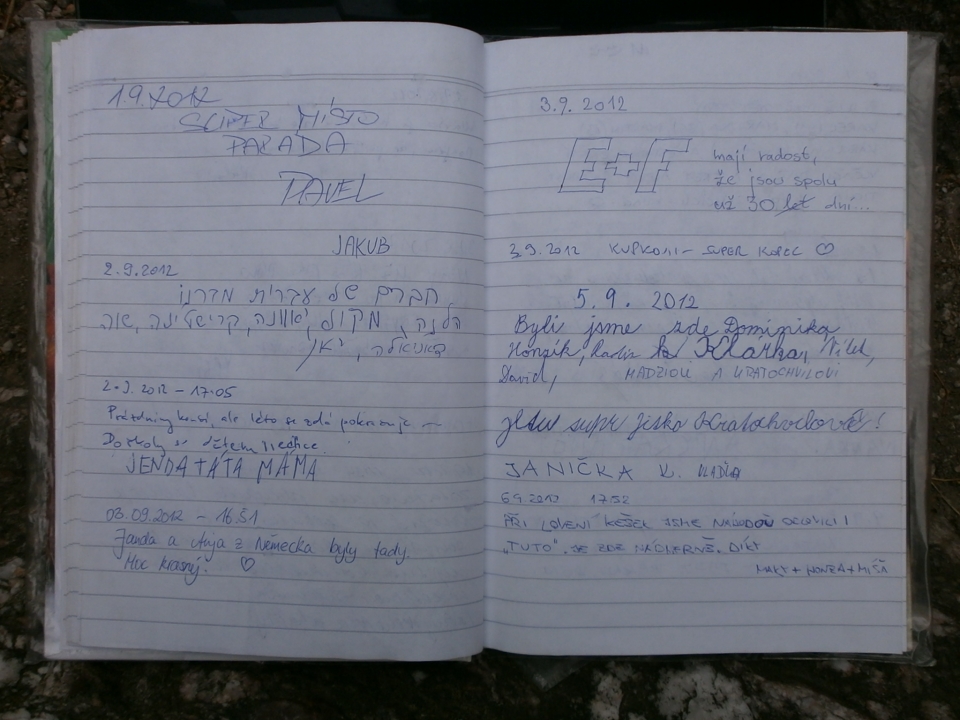 1.9.2012
SUPER MÍSTO
PARÁDA
PAVEL
JAKUB
2.9.2012
חברים של עברית מדרנו
הלנה, מיקול, יאוונה, קריסטינה, שרה
דאניאלה, יאן
2.9.2012 - 17:05
Prázdniny končí, ale léto se zdá pokračuje
Do školy se dětem nechce.
JENDA + TÁTA MÁMA
03.09.2012 - 16:51
Janda a Anja z Německa byly tady.
Moc krásný! ♡
3.9. 2012
E+F
mají radost,
že jsou spolu
už 30 let dní...
3.9.2012 KUPKOVI - SUPER KOPEC ♡
5.9. 2012
Byli jsme zde Dominika
Honzík, Radix Klárka,
David, MADZIOVI A KRATOCHVILOVI
Jitka Kratochvilová!
JANIČKA K.
6.9.2012 17:52
PŘI LOVENÍ KEŠEK JSME NÁHODOU OBJEVILI
„TUTO". JE ZDE NÁDHERNĚ. DÍKY
MAKY + HONZA + MÍŠA